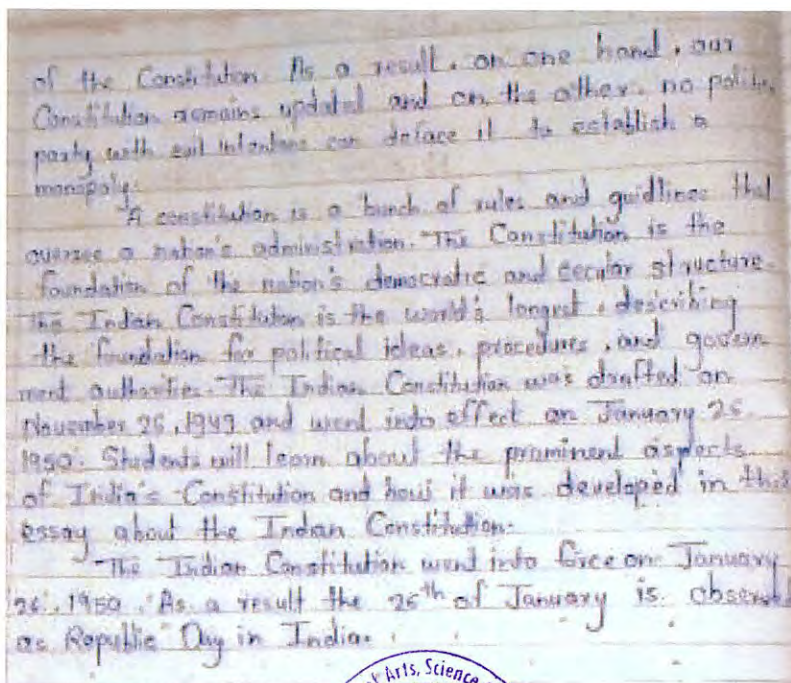 of the Constitution As a result, on one hand, our
Constitution remains updated and on the other, no politic
party with evil intentions can deface it to establish a
monopoly.
A constitution is a bunch of rules and guidlines that
oversee a nation's administration. The Constitution is the
foundation of the nation's democratic and secular structure.
The Indian Constitution is the world's longest, describing
the foundation for political ideas, procedures, and govern
ment authorities. The Indian Constitution was drafted on
November 26, 1949 and went into effect on January 26
1950. Students will learn about the prominent aspects
of India's Constitution and how it was developed in this
essay about the Indian Constitution.
The Indian Constitution went into force on January
26, 1950. As a result the 26th of January is observed
as Republic Day in India.
of Arts, Science